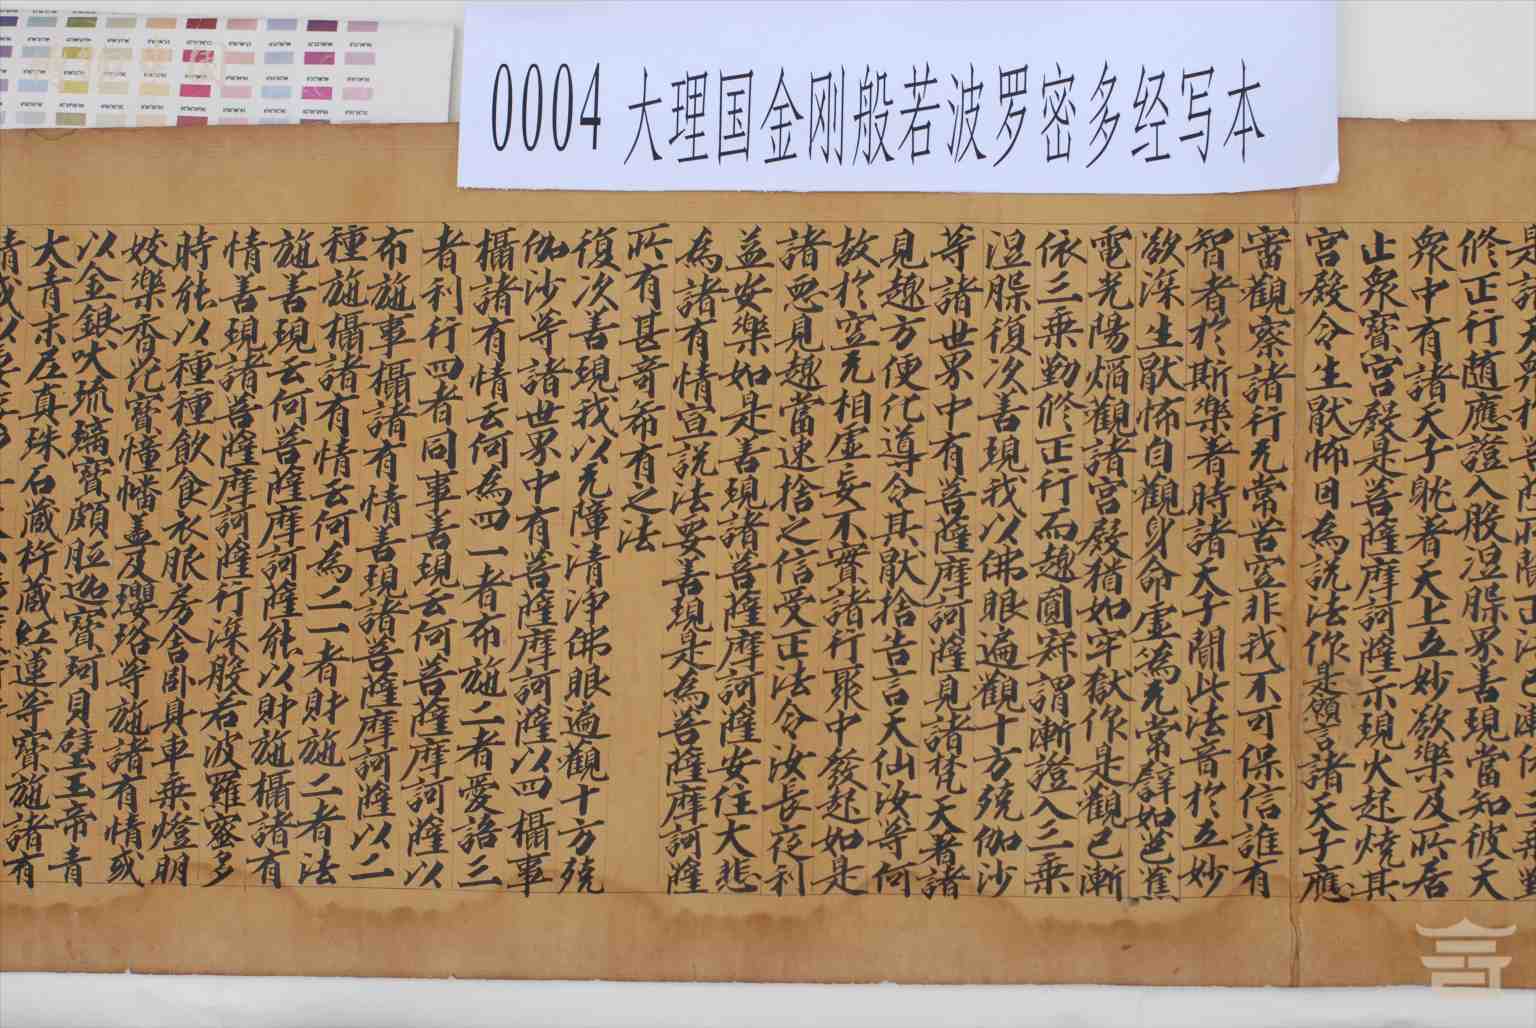 0004 大理国金刚般若波罗密多经写本
修正行随應證入般涅槃界善現當知彼天
衆中有諸天子眈著天上五妙欲樂及所居
止衆寳宮殿是菩薩摩訶薩示現火起燒其
宮殿令生猒怖因為說法作是願言諸天子應
審觀察諸行无常苦空非我不可保信誰有
智者於斯樂著時諸天子聞此法音於五妙
欲深生猒怖自觀身命虛為无常譬如芭蕉
電光陽焰觀諸宮殿猶如牢獄作是觀已漸
依三乘勤修正行而趣圓寂謂漸證入三乘
涅槃復次善現我以佛眼遍觀十方殑伽沙
等諸世界中有菩薩摩訶薩見諸梵天著諸
見趣方便化導令其猒捨告言天仙汝等何
故於空无相虛妄不實諸行聚中發起如是
諸惡見趣當速捨之信受正法令汝長夜利
益安樂如是善現諸菩薩摩訶薩安住大悲
為諸有情宣說法要善現是為菩薩摩訶薩
所有甚奇希有之法
復次善現我以无障清淨佛眼遍觀十方殑
伽沙等諸世界中有菩薩摩訶薩以四攝事
攝諸有情云何為四一者布施二者愛語三
者利行四者同事善現云何菩薩摩訶薩以
布施事攝諸有情善現諸菩薩摩訶薩以二
種施攝諸有情云何為二一者財施二者法
施善現云何菩薩摩訶薩能以財施攝諸有
情善現諸菩薩摩訶薩行深般若波羅蜜多
時能以種種飲食衣服房舍卧具車乘燈明
妓樂香花寳幢幡蓋及瓔珞等施諸有情或
以金銀吠琉璃寳頗胝迦寳珂貝璧玉帝青
大青末尼真珠石藏杵藏紅蓮等寳施諸有